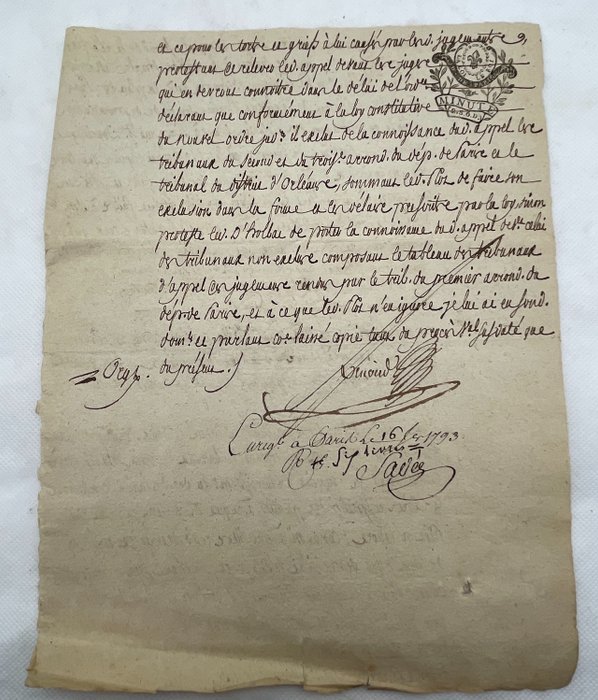 et ce pour les torts et griefs à lui causés par les d. jugements
protestant de relever led. appel devant les juges
qui en devront connoitre dans le délai de l'ord.ce
déclarant que conformément à la loy constitutive
du nouvel ordre jud.re il exclut de la connoissance dud. appel les
tribunaux du second et du trois.e arrond. du dép. de Paris et le
tribunal du district d'Orléans, sommant led. Plot de faire son
exclusion dans la forme et les délais prescrits par la loy, sinon
proteste led. d'holbac de porter la connoissance dud. appel devt celui
des tribunaux non exclus composant le tableau des tribunaux
d'appel des jugements rendus par le trib. du premier arrond. du
dép. de Paris, et à ce que led. Plot n'en ignore je lui ai en sond.
dom.le et parlant co. laissé copie tant du procès v.bal susdaté que
du présent
MINUTE
Enreg. à Paris le 16 1793